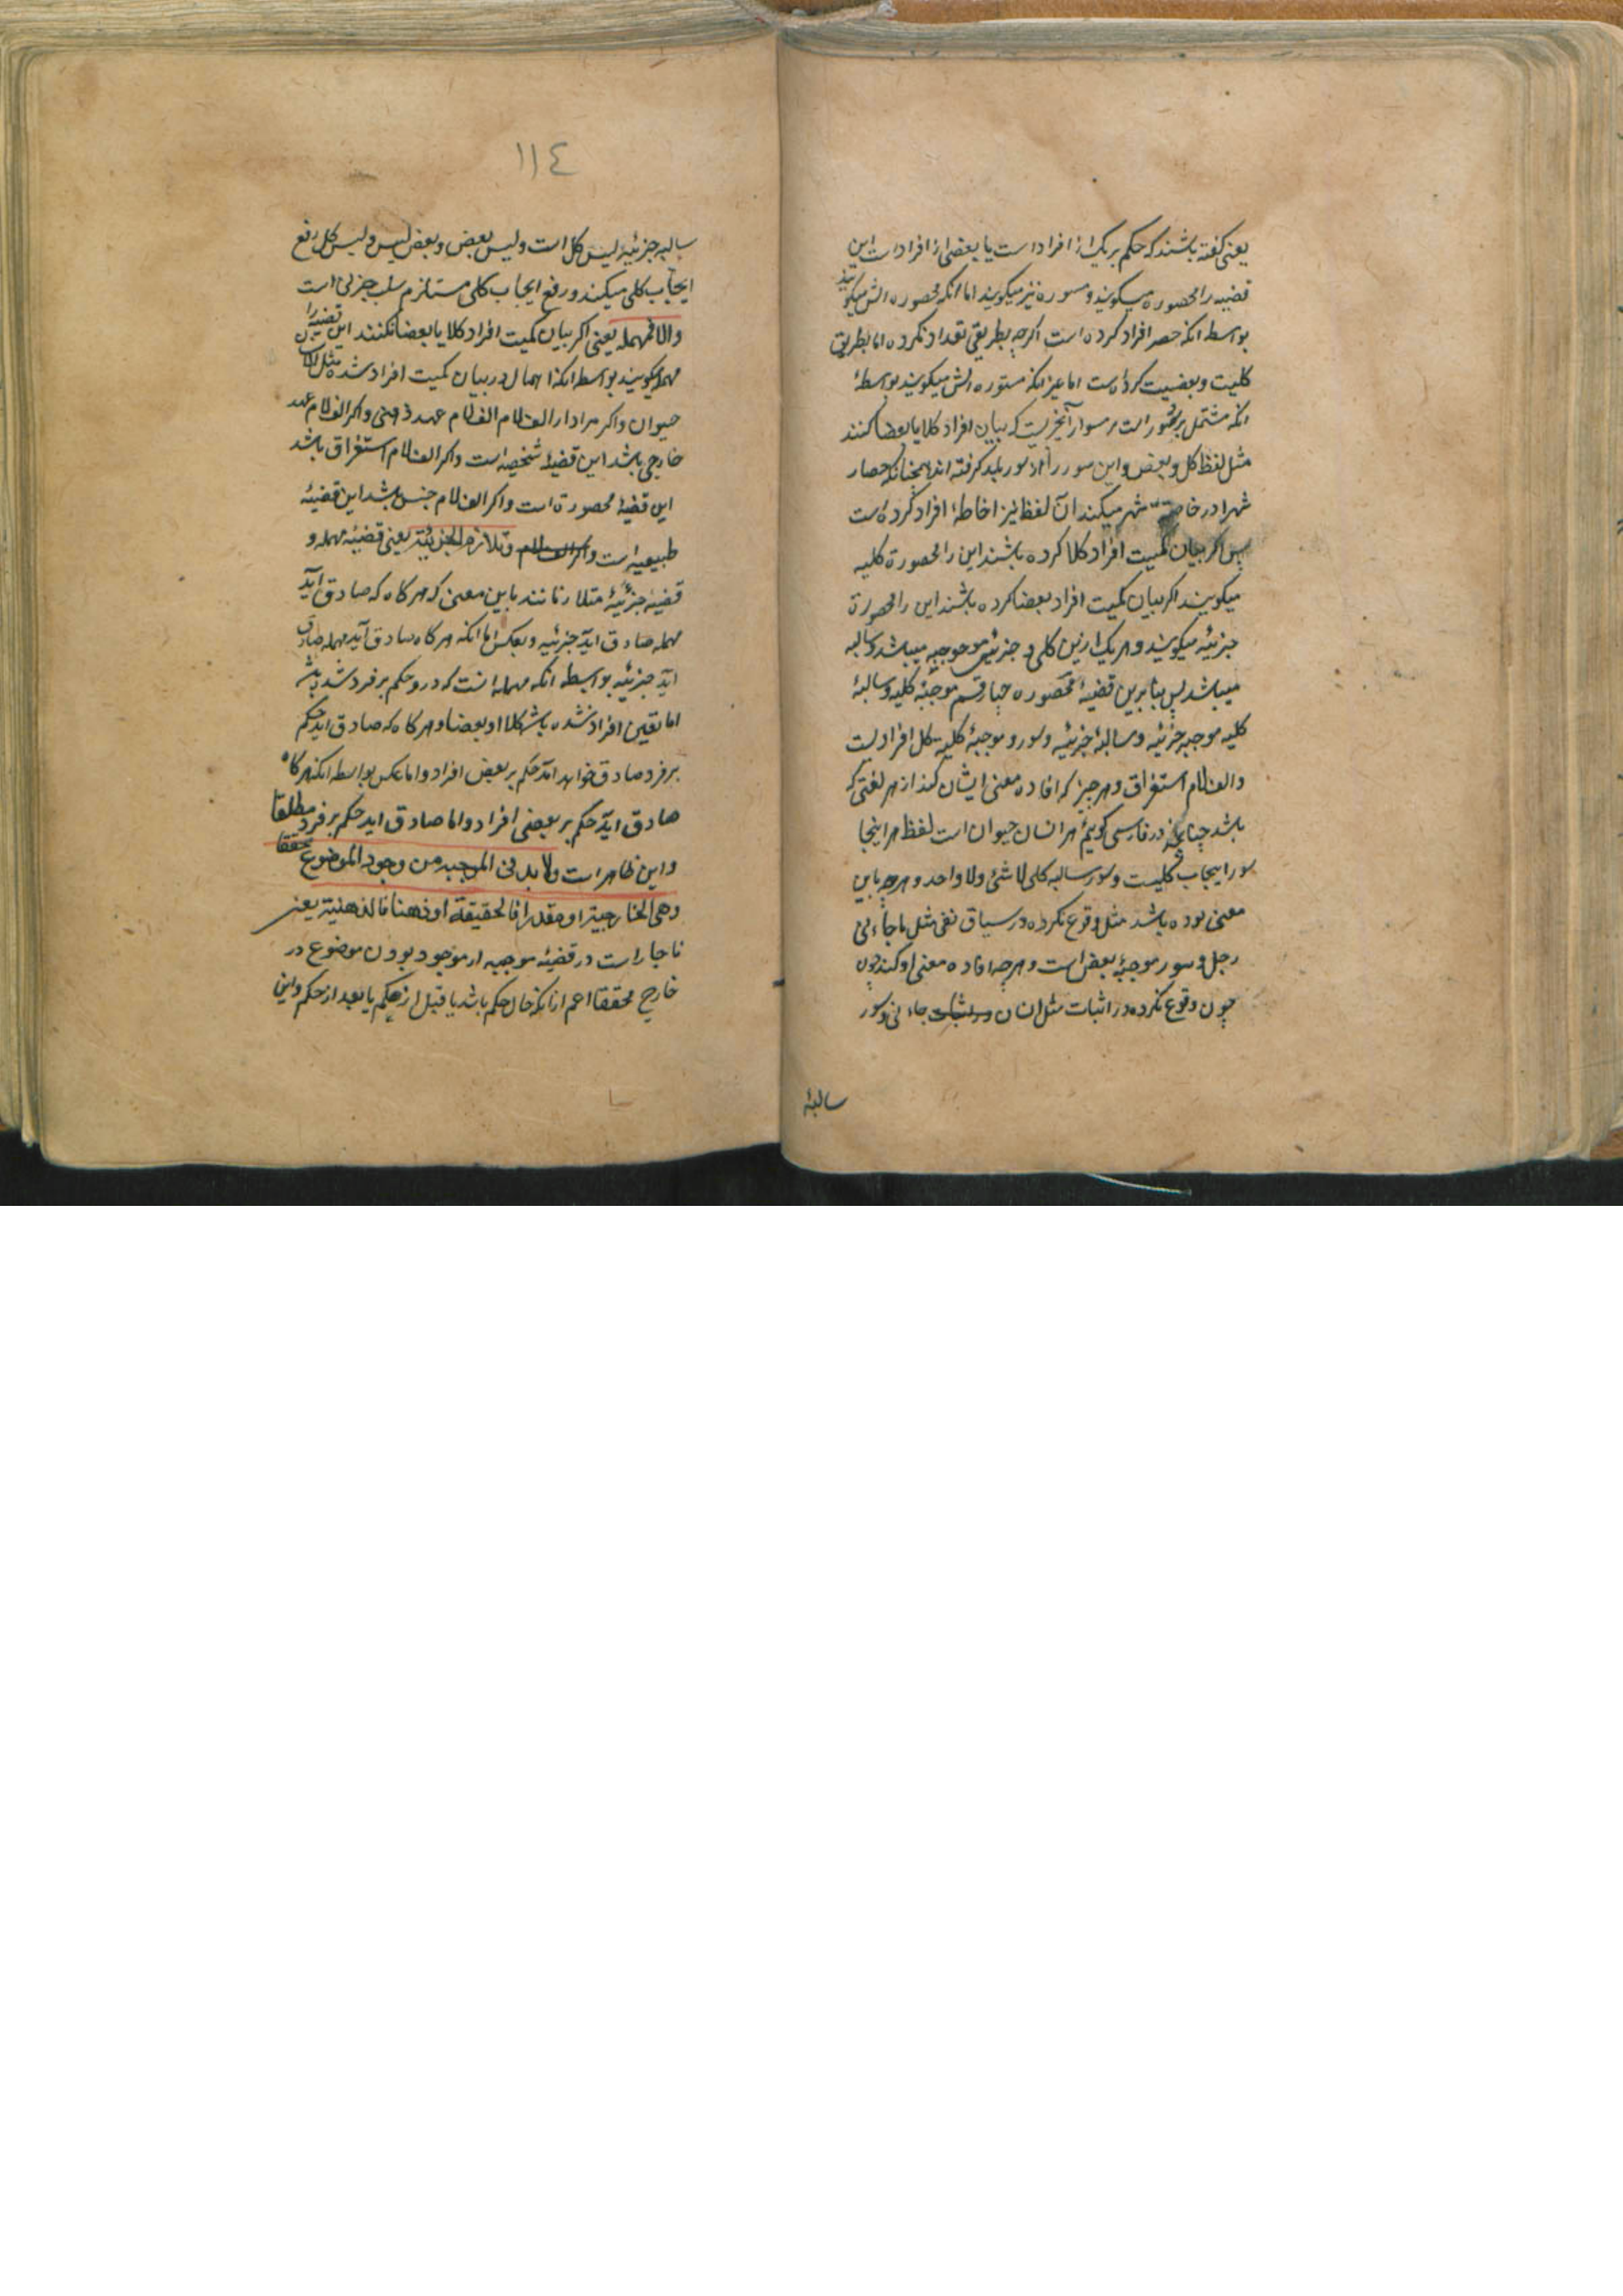 یعنی کفته باشند که حکم بر یک از افراد است یا بعضی از افراد است این
قضیه را محصوره میکویند و مسوره نیز میکویند اما انکه محصوره اش میکویند
بواسطه انکه حصر افراد کرده است اکرچه بطریقی تعداد نکرده اما بطریق
کلیت و بعضیت کرده است اما غیر انکه مسوره اش میکویند بواسطهٔ
انکه مشتمل بر سور است و سور آنچیزیست که بیان افراد کلا یا بعضا کنند
مثل لفظ کل و بعض و این سور را از سور بلد کرفته اند همچنانکه حصار
شهر میکند آن لفظ نیز احاطهٔ افراد کرده است
پس اکر بیان کمیت افراد کلا کرده باشند این را محصورهٔ کلیه
میکویند اکر بیان کمیت افراد بعضا کرده باشند این را محصورة
جزئیه میکویند و هر یک از این کلی و جزئی موجبه میباشد و سالبه
میباشد پس بنابرین قضیهٔ محصوره چهار قسم موجبهٔ کلیه و سالبهٔ
کلیه موجبه جزئیه و سالبهٔ جزئیه و سور موجبهٔ کلیه کل افرادیست
والف لام استغراق و هر چیز که افاده معنی ایشان کند از هر لغتی که
باشد چنانچه در فارسی کوییم هر انسان حیوان است لفظ هر اینجا
سور ایجاب کلیست و سور سالبه کلی لا شئ ولا واحد و هرچه باین
معنی بوده باشد مثل وقوع نکره در سیاق نفی مثل ما جاءنی
رجل و سور موجبهٔ بعض است و هرچه افاده معنی او کند چون
چون وقوع نکره در اثبات مثل انسان جاءنی و سور
سالبهٔ
١١٤
سالبه جزئیهٔ لیس کل است و لیس بعض و بعض لیس و لیس کل رفع
ایجاب کلی میکند و رفع ایجاب کلی مستلزم سلب جزئی است
والا فمهمله یعنی اکر بیان کمیت افراد کلا یا بعضا نکنند این قضیه را
مهمله میکویند بواسطه انکه اهمال در بیان کمیت افراد شده مثل الانسان
حیوان و اکر مراد از الف لام الف لام عهد ذهنی و اکر الف لام عهد
خارجی باشد این قضیهٔ شخصیه است و اکر الف لام استغراق باشد
این قضیهٔ محصورة است و اکر الف لام جنس باشد این قضیهٔ
طبیعیه است و اکر الف لام و تلازم الجزئیة یعنی قضیهٔ مهمله و
قضیهٔ جزئیهٔ متلازمانند باین معنی که هر کاه که صادق آید
مهمله صادق آید جزئیه و بعکس اما انکه هر کاه صادق آید مهمله صادق
آید جزئیه بواسطه انکه مهمله انست که درو حکم بر فرد شده باشد
اما تعین افراد نشده باشد کلا او بعضا و هر کاه که صادق اید حکم
بر فرد صادق خواهد امد حکم بر بعض افراد و اما عکس بواسطه انکه هرکاه
صادق اید حکم بر بعضی افراد و اما صادق اید حکم بر فرد مطلقا
و این ظاهر است ولا بد فی الموجبه من وجود الموضوع محققا
وهی الخارجیة او مقدرا فالحقیقة او ذهنا فالذهنیة یعنی
ناچار است در قضیهٔ موجبه از موجود بودن موضوع در
خارج محققا اعم ازانکه حال حکم باشد یا قبل از حکم یا بعد از حکم و این